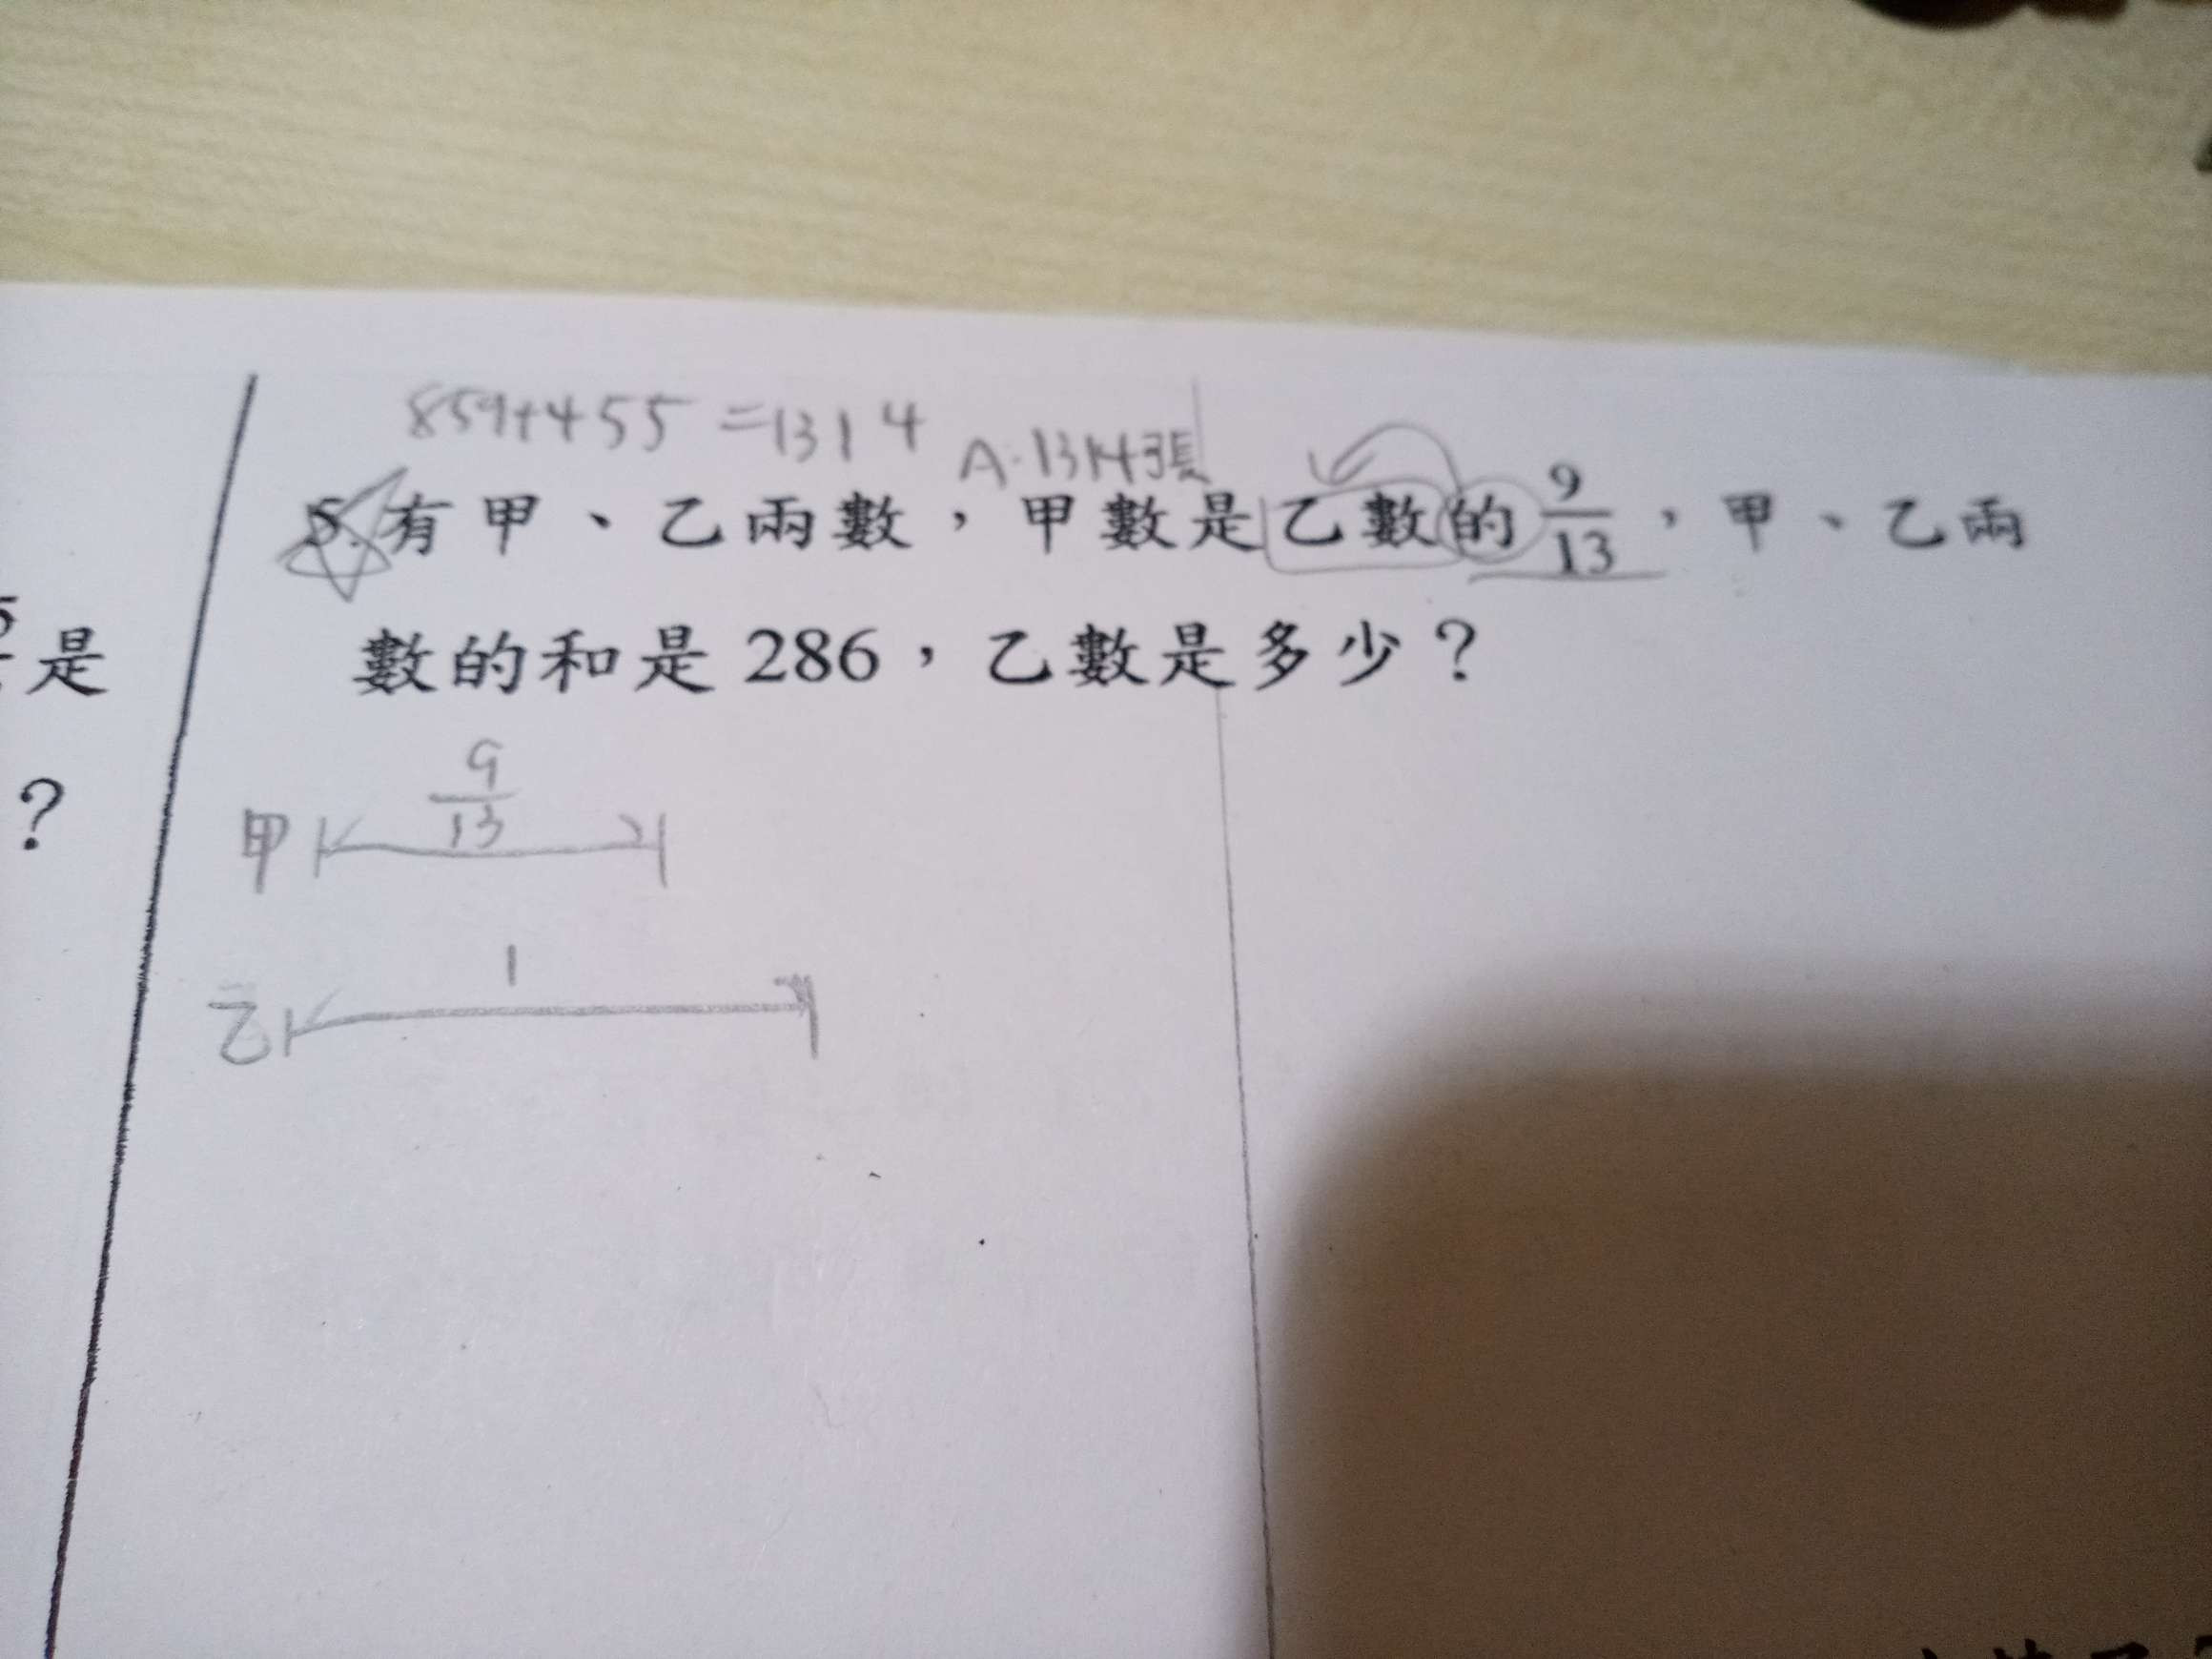 859+455=1314 A:1314張
5.有甲、乙兩數，甲數是乙數的9/13，甲、乙兩
是
數的和是286，乙數是多少？
?
9/13
甲
1
乙